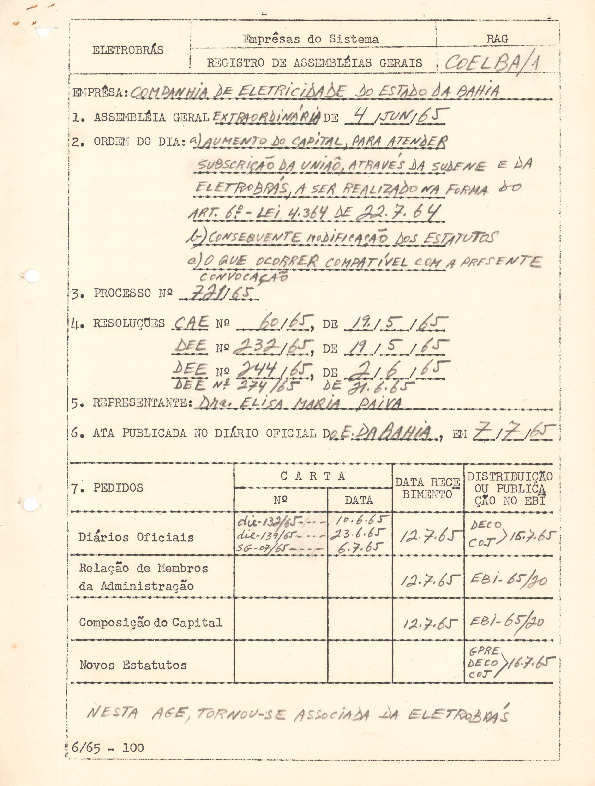 ELETROBRÁS
Emprêsas do Sistema
RAG
REGISTRO DE ASSEMBLÉIAS GERAIS
COELBA/1
EMPRÊSA: COMPANHIA DE ELETRICIDADE DO ESTADO DA BAHIA
1. ASSEMBLÉIA GERAL EXTRAORDINÁRIA DE 4/JUN/65
2. ORDEM DO DIA: a) AUMENTO DO CAPITAL, PARA ATENDER
SUBSCRIÇÃO DA UNIÃO, ATRAVÉS DA SUDENE E DA
ELETROBRÁS, A SER REALIZADO NA FORMA DO
ART. 6º - LEI 4.364 DE 22.7.64
b) CONSEQUENTE MODIFICAÇÃO DOS ESTATUTOS
c) O QUE OCORRER COMPATÍVEL COM A PRESENTE
CONVOCAÇÃO
3. PROCESSO Nº 721/65
4. RESOLUÇÕES CAE Nº 60/65, DE 19/5/65
DEE Nº 232/65, DE 19/5/65
DEE Nº 244/65, DE 2/6/65
DEE Nº 274/65 DE 21.6.65
5. REPRESENTANTE: Dra. ELISA MARIA PAIVA
6. ATA PUBLICADA NO DIÁRIO OFICIAL DO E. DA BAHIA, EM 7/7/65
7. PEDIDOS
CARTA
Nº
DATA
DATA RECE
BIMENTO
DISTRIBUIÇÃO
OU PUBLICA
ÇÃO NO EBI
Diários Oficiais
die-132/65---- 10.6.65
die-139/65---- 23.6.65
SG-07/65---- 6.7.65
12.7.65
DECO
COJ
15.7.65
Relação de Membros
da Administração
12.7.65
EBI-65/20
Composição do Capital
12.7.65
EBI-65/20
Novos Estatutos
GPRE
DECO
COJ
16.7.65
NESTA AGE, TORNOU-SE ASSOCIADA DA ELETROBRÁS
6/65 - 100